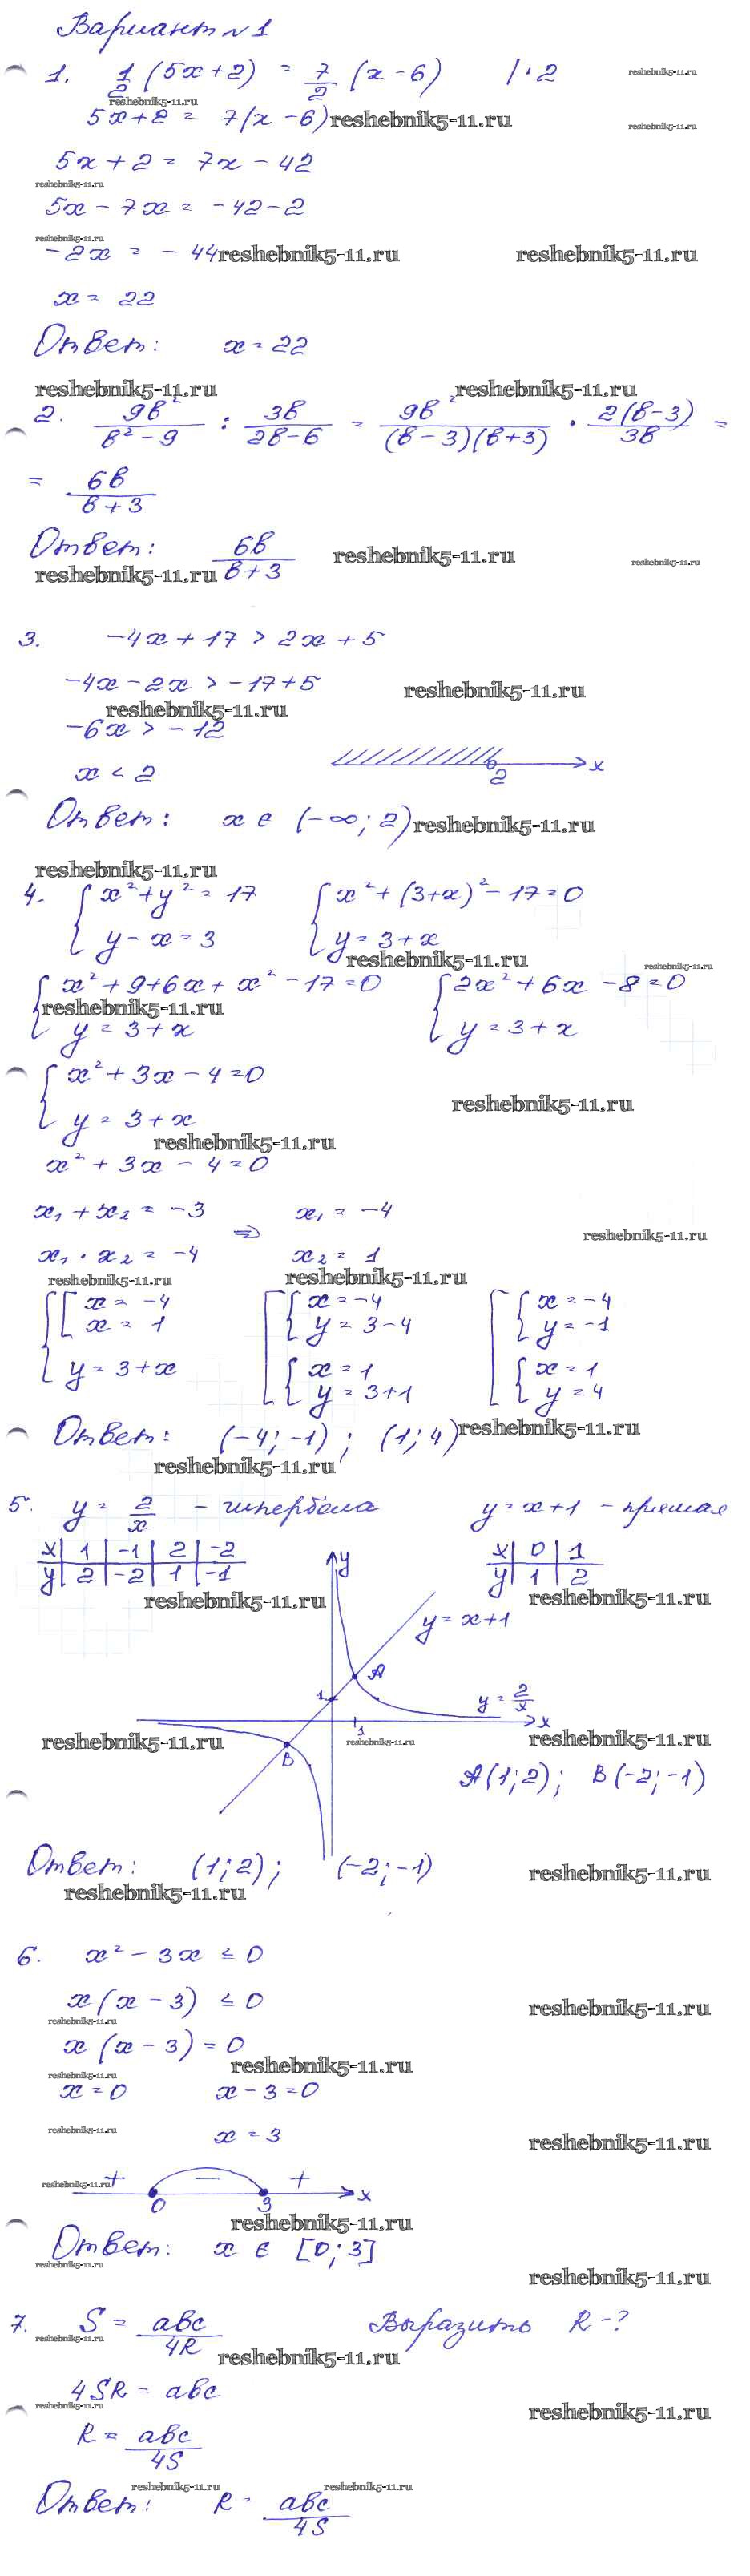 Вариант №1
1. 1/2 (5x+2) = 7/2 (x-6) | · 2
reshebnik5-11.ru
reshebnik5-11.ru
5x+2 = 7(x-6) reshebnik5-11.ru
reshebnik5-11.ru
5x+2 = 7x-42
reshebnik5-11.ru
5x-7x = -42-2
reshebnik5-11.ru
-2x = -44 reshebnik5-11.ru reshebnik5-11.ru
x = 22
Ответ: x = 22
reshebnik5-11.ru reshebnik5-11.ru
2. 9в²/(в²-9) : 3в/(2в-6) = 9в²/((в-3)(в+3)) · 2(в-3)/3в =
= 6в/(в+3)
Ответ: 6в/(в+3) reshebnik5-11.ru reshebnik5-11.ru
reshebnik5-11.ru
3. -4x+17 > 2x+5
-4x-2x > -17+5 reshebnik5-11.ru
reshebnik5-11.ru
-6x > -12
x < 2
2 x
Ответ: x ∈ (-∞; 2) reshebnik5-11.ru
reshebnik5-11.ru
4. { x²+y² = 17 { x²+(3+x)²-17=0
y-x=3 y=3+x
reshebnik5-11.ru reshebnik5-11.ru
{ x²+9+6x+x²-17=0 { 2x²+6x-8=0
reshebnik5-11.ru
y=3+x y=3+x
{ x²+3x-4=0
reshebnik5-11.ru
y=3+x
reshebnik5-11.ru
x²+3x-4=0
x₁+x₂ = -3 x₁ = -4
⇒ reshebnik5-11.ru
x₁·x₂ = -4 x₂ = 1
reshebnik5-11.ru reshebnik5-11.ru
{ [ x=-4 [ { x=-4 [ { x=-4
x=1 y=3-4 y=-1
y=3+x { x=1 { x=1
y=3+1 y=4
Ответ: (-4;-1); (1;4) reshebnik5-11.ru
reshebnik5-11.ru
5. y = 2/x - гипербола y=x+1 - прямая
x | 1 | -1 | 2 | -2 y x | 0 | 1
y | 2 | -2 | 1 | -1 y | 1 | 2
reshebnik5-11.ru reshebnik5-11.ru
y=x+1
A
1 y = 2/x
x
1
reshebnik5-11.ru reshebnik5-11.ru reshebnik5-11.ru
B
A(1;2); B(-2;-1)
Ответ: (1;2); (-2;-1) reshebnik5-11.ru
reshebnik5-11.ru
6. x²-3x ≤ 0
x(x-3) ≤ 0 reshebnik5-11.ru
reshebnik5-11.ru
x(x-3)=0
reshebnik5-11.ru
reshebnik5-11.ru
x=0 x-3=0
reshebnik5-11.ru
x=3 reshebnik5-11.ru
reshebnik5-11.ru + - +
0 3 x
reshebnik5-11.ru
Ответ: x ∈ [0;3]
reshebnik5-11.ru reshebnik5-11.ru
7. S = abc/4R Выразить R-?
reshebnik5-11.ru reshebnik5-11.ru
4SR = abc
reshebnik5-11.ru reshebnik5-11.ru
R = abc/4S
reshebnik5-11.ru reshebnik5-11.ru
Ответ: R = abc/4S